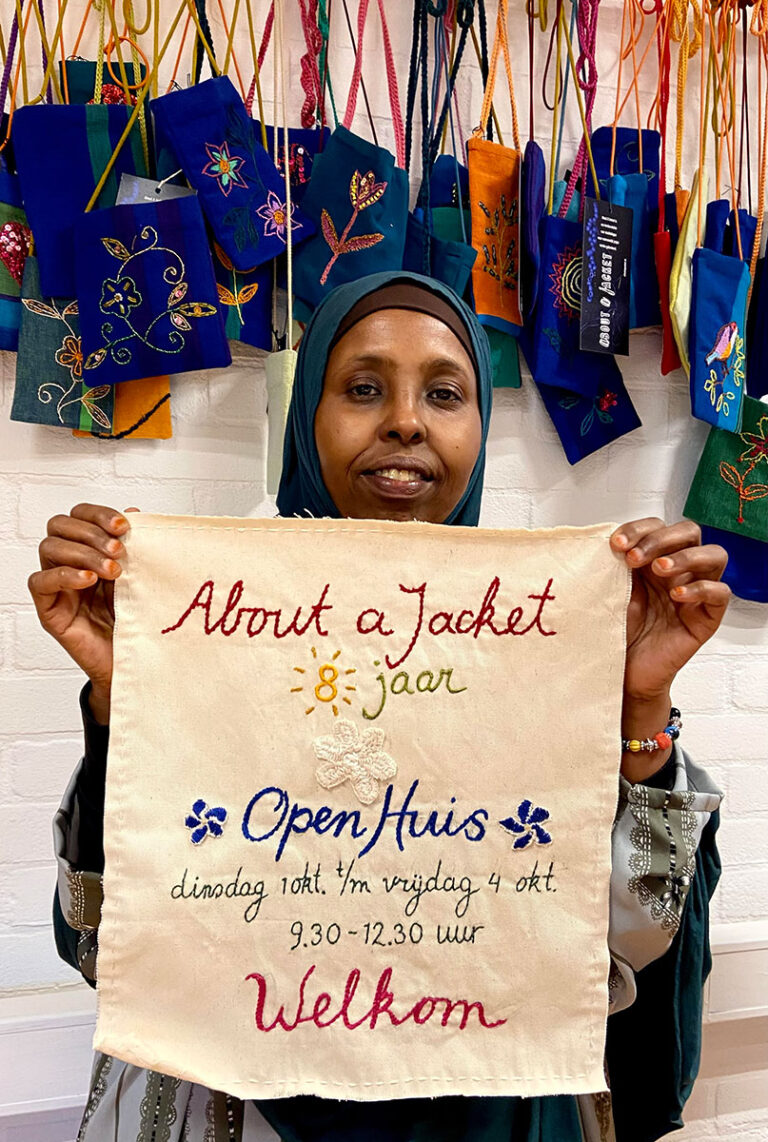 ABOUT A JACKET
About a Jacket
8 jaar
Open Huis
dinsdag 1 okt. t/m vrijdag 4 okt.
9.30 - 12.30 uur
Welkom